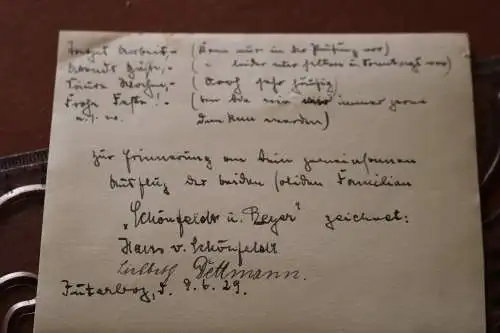 Tages Arbeit,- (Kam nur in der Prüfung vor)
Abends Gäste,- ( " leider nur selten u. vor)
Saure Wochen,- (doch sehr häufig)
Frohe Feste!,- (an die wir immer gerne
u.s.w. denken werden)
Zur Erinnerung an den gemeinsamen
Ausflug der beiden soliden Familien
"Schönfeldt u. Beyer" zeichnet:
Hans v. Schönfeldt
Dettmann.
Jüterbog, d. 9.6.29.